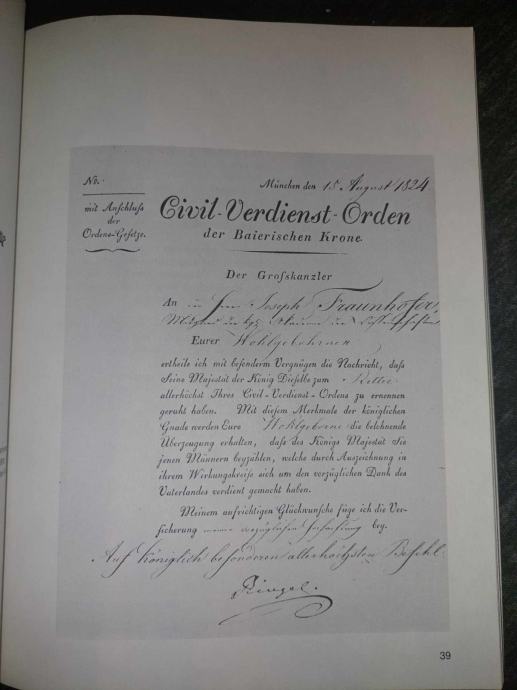 No.
München den 15. August 1824
mit Anschluss
der
Ordens-Gesetze.
Civil-Verdienst-Orden
der Baierischen Krone.
Der Grosskanzler
An Joseph Fraunhofer,
Mitglied der kgl. Akademie der Wissenschaften
Eurer Wohlgebohrnen
ertheile ich mit besonderm Vergnügen die Nachricht, dass
Seine Majestät der König Dieselbe zum Ritter
allerhöchst Ihres Civil-Verdienst-Ordens zu ernennen
geruht haben. Mit diesem Merkmale der königlichen
Gnade werden Eure Wohlgeborne die belohnende
Überzeugung erhalten, dass des Königs Majestät Sie
jenen Männern beyzählen, welche durch Auszeichnung in
ihrem Wirkungskreise sich um den vorzüglichen Dank des
Vaterlandes verdient gemacht haben.
Meinem aufrichtigen Glückwunsche füge ich die Ver-
sicherung meiner vorzüglichen Hochachtung bey.
Auf Königlich besonderen allerhöchsten Befehl
Ringel.
39